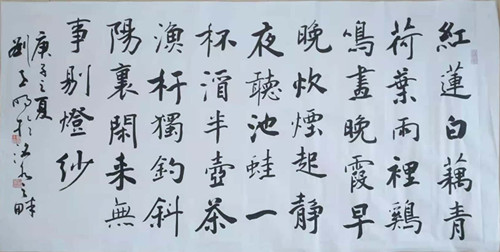 紅蓮白藕青
荷葉雨裡鷄
鳴晝晚霞早
晚炊煙起靜
夜聽池蛙一
杯酒半壺茶
漁杆獨釣斜
陽裏閑来無
事剔燈紗
庚子之夏
劉